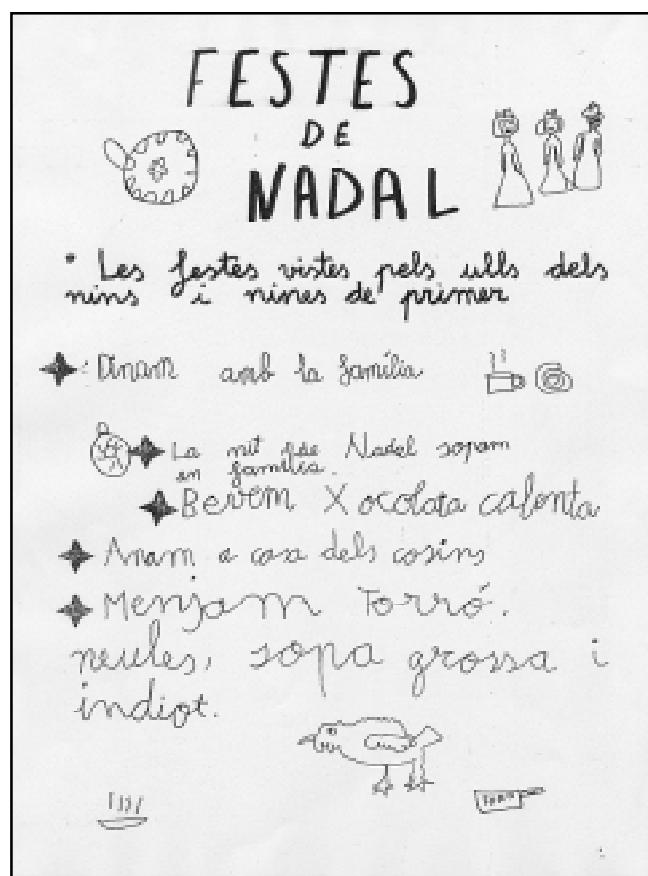 FESTES
DE
NADAL
* Les festes vistes pels ulls dels
nins i nines de primer
: Dinam amb la família
La nit de Nadal sopam
en família.
Bevem Xocolata calenta
Anam a casa dels cosins
Menjam Torró,
neules, sopa grossa i
indiot.